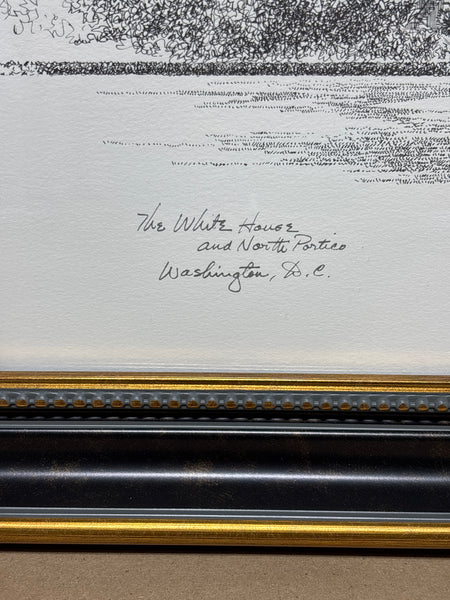 The White House
and North Portico
Washington, D.C.